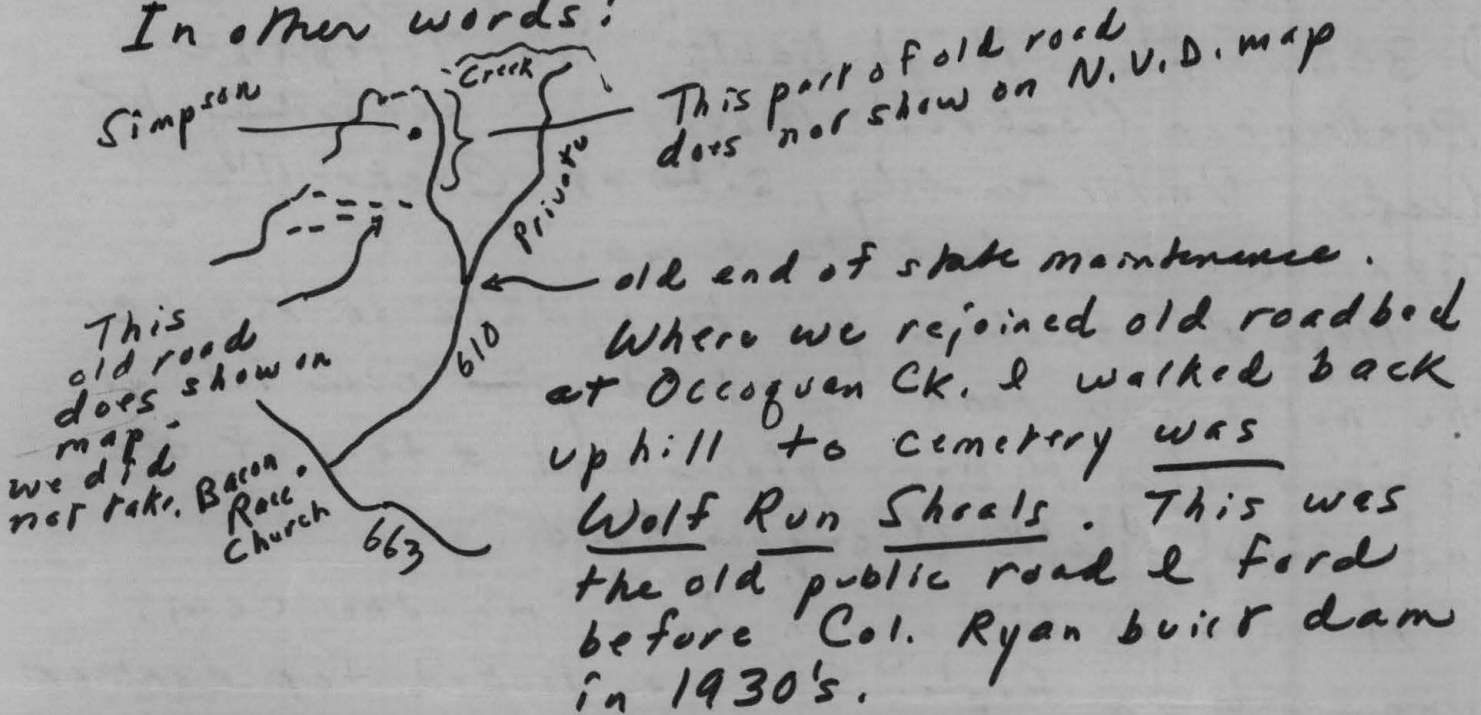 In other words:
Creek
Simpson
This part of old road
does not show on N.V.D. map
Private
old end of state maintenance.
This
old road
does show on
map.
we did
not take.
610
Where we rejoined old roadbed
at Occoquan Ck. & walked back
uphill to cemetery was
Wolf Run Shoals. This was
the old public road & ford
before Col. Ryan built dam
in 1930's.
Bacon
Race
Church
663